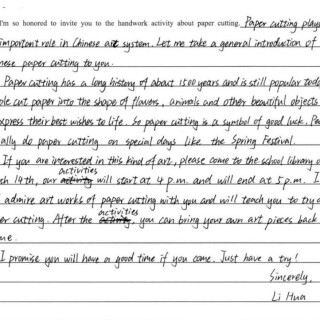 I'm so honored to invite you to the handwork activity about paper cutting. Paper cutting plays
important role in Chinese art system. Let me take a general introduction of
nese paper cutting to you.
Paper cutting has a long history of about 1500 years and is still popular tod
ple cut paper into the shape of flowers, animals and other beautiful objects
xpress their best wishes to life. So paper cutting is a symbol of good luck. Pe
ally do paper cutting on special days like the Spring Festival.
If you are interested in this kind of art, please come to the school library o
h 14th, our activities will start at 4 p.m. and will end at 5 p.m. I
admire art works of paper cutting with you and will teach you to try
er cutting. After the activities, you can bring your own art pieces back
me.
I promise you will have a good time if you come. Just have a try!
Sincerely,
Li Hua